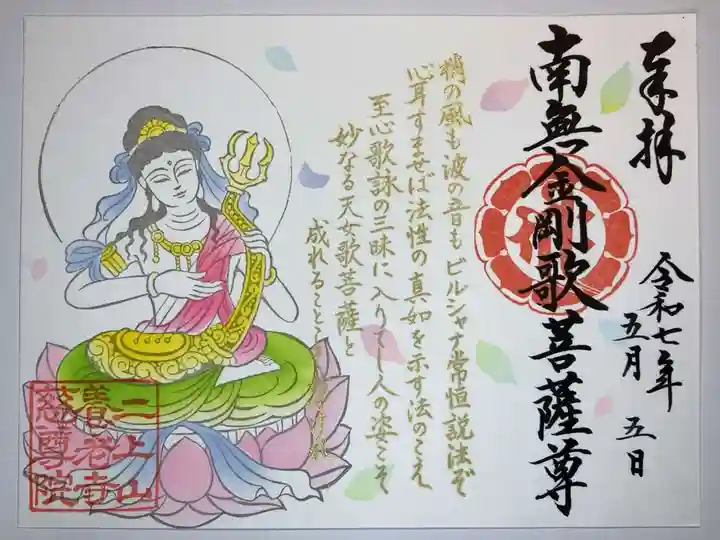 奉拝
令和七年
五月 五日
南無金剛歌菩薩尊
梢の風も波の音も ビルシャナ常恒説法ぞ
心耳すませば法性の真如を示す法のこえ
至心歌詠の三昧に入りてし人の姿こそ
妙なる天女歌菩薩と
成れることこそ
二上山
養老寺
慈尊院